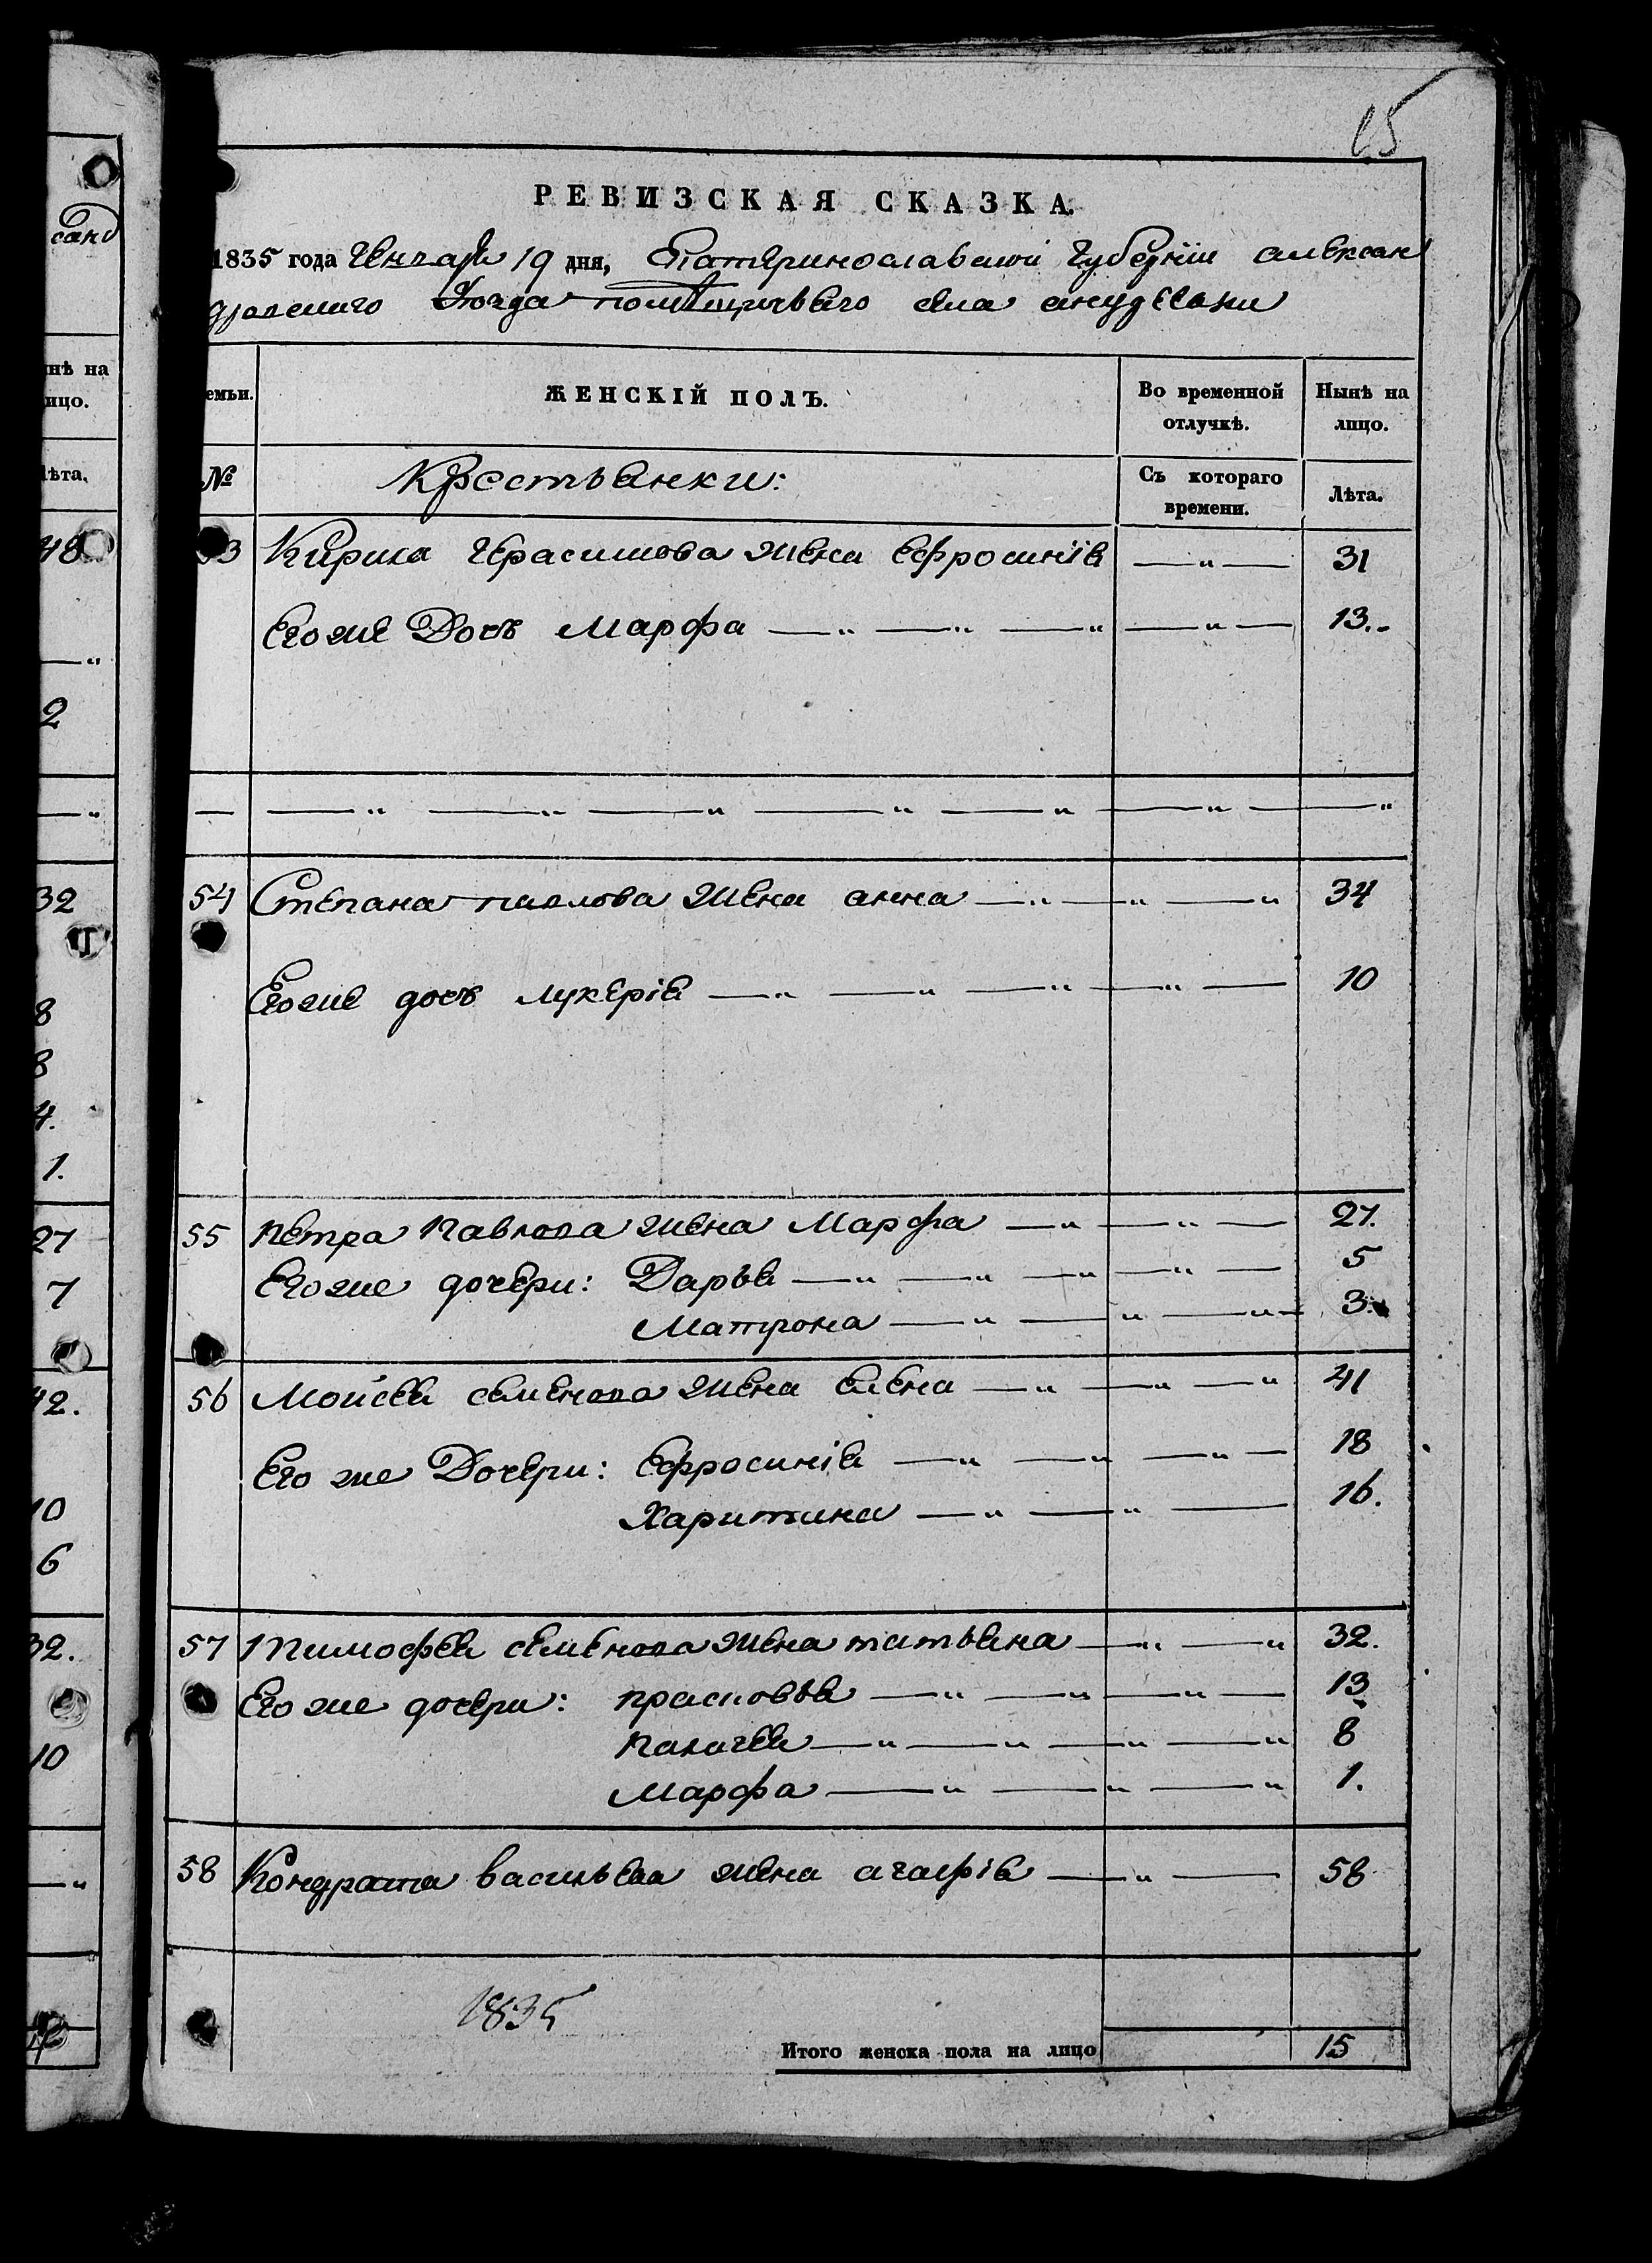 15
РЕВИЗСКАЯ СКАЗКА.
1835 года Генваря 19 дня, Екатеринославской Губерніи алексан
дровскаго уѣзда помѣщичьяго села
емьи.
ЖЕНСКІЙ ПОЛЪ.
Во временной отлучкѣ.
Нынѣ на лицо.
№
Крестьянки:
Съ котораго времени.
Лѣта.
3 Кирила Герасимова жена Ефросинія — „ — 31
Его же Дочь Марфа — „ — „ — „ — „ — 13.
— — „ — „ — „ — „ — „ — „ — „
54 Степана павлова жена анна — „ — „ — „ 34
Его же дочь лукерія — „ — „ — „ — „ — 10
55 Петра Павлова жена Марфа — „ — „ — 27.
Его же дочери: Дарья — „ — „ — „ — „ — 5
Матрона — „ — „ — „ — 3.
56 Мойсея семенова жена елена — „ — „ — „ 41
Его же Дочери: Ефросинія — „ — „ — „ — 18
Харитина — „ — „ — 16.
57 Тимофея семенова жена татьяна — „ — „ 32.
Его же дочери: прасковья — „ — „ — „ — 13
Палагея — „ — „ — „ — „ 8
Марфа — „ — „ — „ 1.
58 Кондрата васильева жена агафія — „ — 58
1835
Итого женска пола на лицо 15
санд
нѣ на
ицо.
ѣта.
48
— „
2
— „
32
8
8
4.
1.
27
7
42.
10
6
32.
10
— „